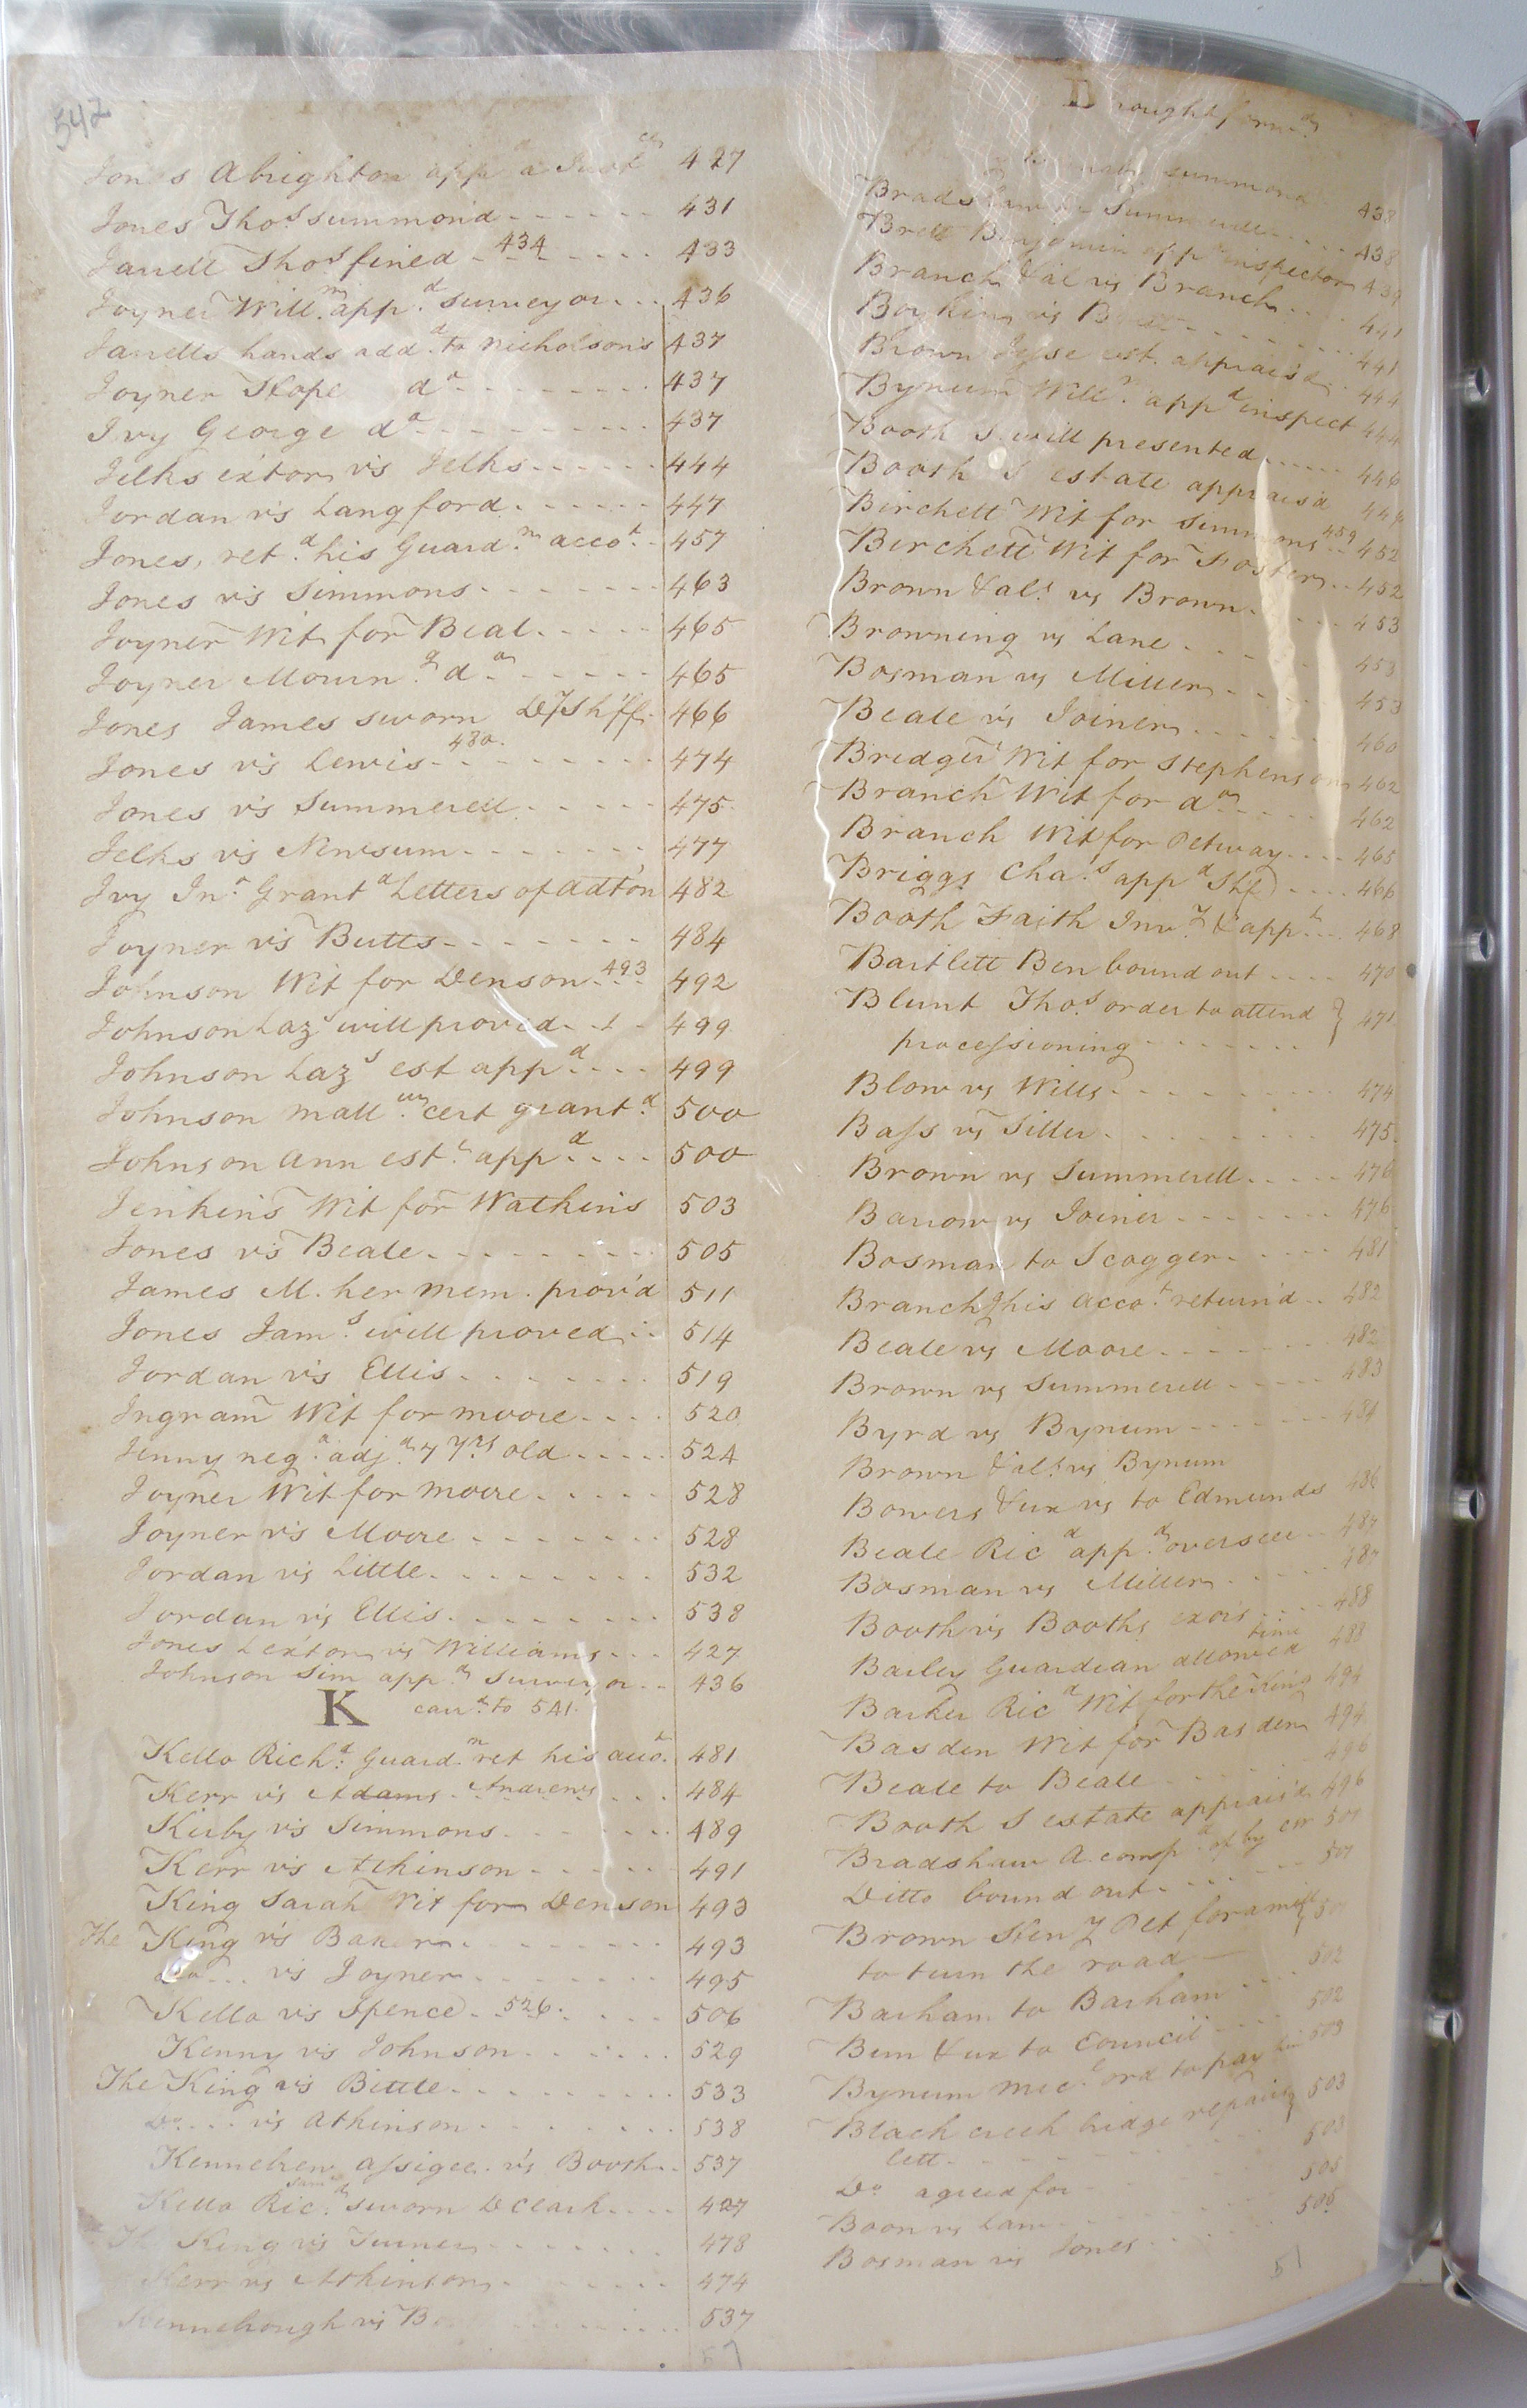 542
Jones Abrighton app d 427
Jones Thos summond - - - - - - 431
Jarrell Thos fined - 434 - - - - 433
Joyner Willm app.d surveyor . . . 436
Jarrells hands add.d to Nicholsons 437
Joyner Hope do - - - - - - - 437
Ivy George do - - - - - - - - 437
Jelks extors vs Jelks - - - - - - 444
Jordan vs Langford - - - - - - 447
Jones, ret.d his Guard.n acco.t - 457
Jones vs Simmons - - - - - - 463
Joyner Wit for Beal - - - - - 465
Joyner Mourn.g do - - - - - - 465
Jones James sworn Dy Shff. 466
Jones vs Lewis - 480. - - - - - 474
Jones vs Summerell - - - - - 475
Jelks vs Newsum - - - - - - - 477
Ivy Jno. Grant.d Letters of adton 482
Joyner vs Butts - - - - - - - 484
Johnson Wit for Denson 493 492
Johnson Lazs will proved - - - 499
Johnson Lazs est app.d - - - 499
Johnson Matt.w cert grant.d 500
Johnson Ann est.t app.d - - - - 500
Jenkins Wit for Watkins 503
Jones vs Beale - - - - - - - - - 505
James M. her mem. prov'd 511
Jones Jam.s will proved - - 514
Jordan vs Ellis - - - - - - - 519
Ingram Wit for Moore - - - - 520
Jenny neg.o adj.d 7 yrs old - - - - - 524
Joyner Wit for Moore - - - - - 528
Joyner vs Moore - - - - - - - 528
Jordan vs Little - - - - - - - - 532
Jordan vs Ellis - - - - - - - - 538
Jones Lexton vs Williams - - - 427
Johnson Sim app.d Surveyor - - 436
K carr.d to 541.
Kello Rich.d Guard.n ret his acco.t 481
Kerr vs Adams - Andrews - - - 484
Kirby vs Simmons - - - - - - - 489
Kerr vs Atkinson - - - - - - 491
King Sarah Wit for Denson 493
The King vs Baker - - - - - - - 493
Do - - - vs Joyner - - - - - - - 495
Kello vs Spence - 526 - - - - 506
Kenny vs Johnson - - - - - - 529
The King vs Bittle - - - - - - - - - 533
Do - - - vs Atkinson - - - - - - - 538
Kennebrew assigee vs Booth - - 537
Kello Ric.d Sam sworn D Clark - - - - 427
The King vs Turner - - - - - - - 478
Kerr vs Atkinson - - - - - - 474
Kennebough vs 537
Brought forwd
summond 438
Bradshaw 438
Brett Benjamin app.d inspector 439
Branch & al vs Branch - - - - 441
Boykin vs - - - - - - - 441
Brown Jesse est. appraisd - - 444
Bynum Will.m app.d inspect 444
Booth S will presented - - - - - 446
Booth S estate appraisd 449
Birchett Wit for Simmons 459 452
Birchett Wit for Foster - - 452
Brown & al.s vs Brown - - - - - 453
Browning vs Lane - - - - - - 453
Bosman vs Miller - - - - - 453
Beale vs Joiner - - - - - - 460
Bridger Wit for Stephenson 462
Branch Wit for do - - - - - 462
Branch Wit for Petway - - - - 465
Briggs Cha.s app.d Shf - - - - 466
Booth Faith Inv.y & app.t - - - 468
Bartlett Ben bound out - - - - 470
Blunt Thos order to attend } 471
processioning - - - - - - -
Blow vs Wills - - - - - - - - - 474
Bass vs Siller - - - - - - - - - 475
Brown vs Summerell - - - - - 476
Barrow vs Joiner - - - - - - - 476
Bosman to Scogger - - - - - 481
Branch J his acco.t returnd - - 482
Beale vs Moore - - - - - - - 482
Brown vs Summerell - - - - - 483
Byrd vs Bynum - - - - - - - 484
Brown & al.s vs Bynum
Bowers & ux vs to Edmunds 486
Beale Ric.d app.d overseer - - 487
Bosman vs Miller - - - - - 487
Booth vs Booths exors - - - - 488
Bailey Guardian allowed time 488
Barker Ric.d Wit for the King 494
Basden Wit for Basden 494
Beale to Beale - - - - - - 496
Booth S estate appraisd 496
Bradshaw A. comp.d of by 501
Ditto bound out - - - - - - 501
Brown Hen.y Pet for a mill } 501
to turn the road
Barham to Barham - - - - 502
Bun & ux to Council - - - - 502
Bynum Mic.l ord to pay 503
Black creek bridge repairing } 503
lett - - - - - - - - - 503
Do agreed for - - - - - - -
Boon vs Law - - - - - - - 505
Bosman vs Jones - - - - - - 506